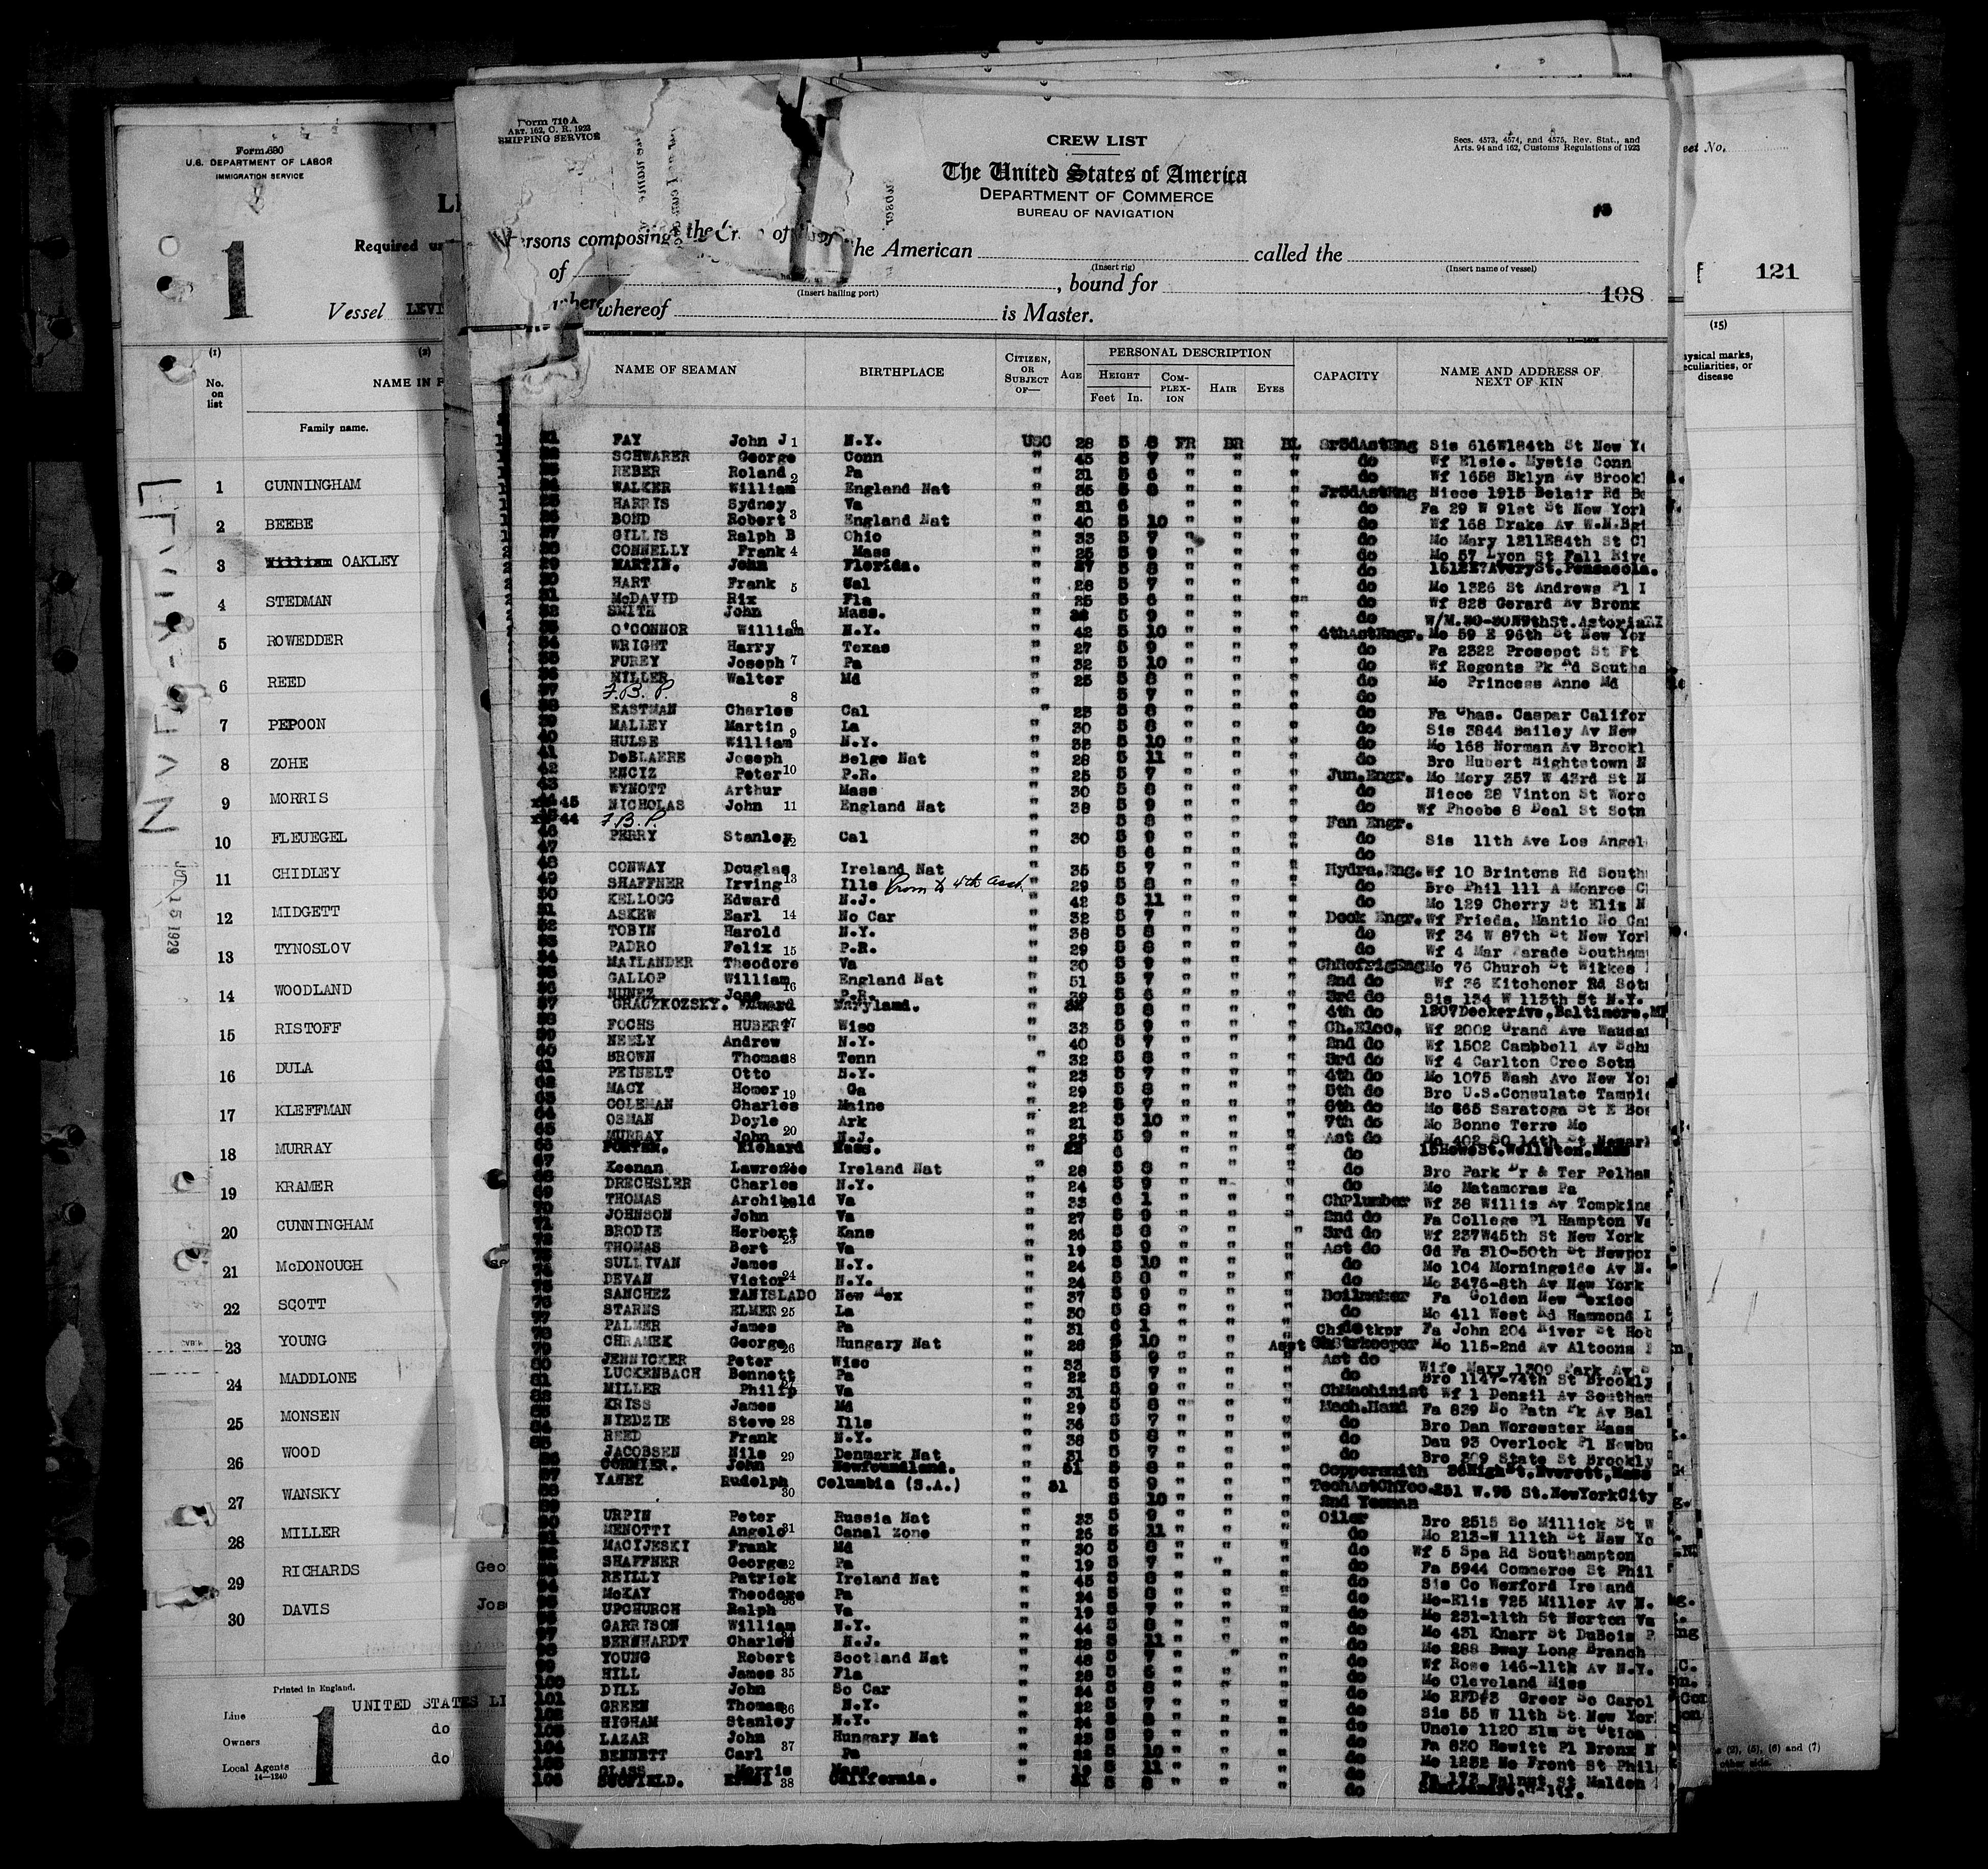 Form 680
U.S. DEPARTMENT OF LABOR
IMMIGRATION SERVICE
1
Required
Vessel LEVI
(1)
(2)
No. on list
NAME IN F
Family name.
1 CUNNINGHAM
2 BEEBE
3 William OAKLEY
4 STEDMAN
5 ROWEDDER
6 REED
7 PEPOON
8 ZOHE
9 MORRIS
10 FLEUEGEL
11 CHIDLEY
12 MIDGETT
13 TYNOSLOV
14 WOODLAND
15 RISTOFF
16 DULA
17 KLEFFMAN
18 MURRAY
19 KRAMER
20 CUNNINGHAM
21 McDONOUGH
22 SCOTT
23 YOUNG
24 MADDLONE
25 MONSEN
26 WOOD
27 WANSKY
28 MILLER
29 RICHARDS Geo
30 DAVIS Jos
JUL 15 1929
Printed in England.
Line UNITED STATES LI
Owners do
Local Agents do
14—1240
1
Form 710 A
ART. 162, C. R. 1923
SHIPPING SERVICE
CREW LIST
The United States of America
DEPARTMENT OF COMMERCE
BUREAU OF NAVIGATION
Secs. 4573, 4574, and 4575, Rev. Stat., and
Arts. 94 and 162, Customs Regulations of 1923
ersons composing the Cr of he American called the
(Insert rig) (Insert name of vessel)
of , bound for
(Insert hailing port)
108
whereof is Master.
NAME OF SEAMAN BIRTHPLACE CITIZEN, OR SUBJECT OF— AGE PERSONAL DESCRIPTION CAPACITY NAME AND ADDRESS OF NEXT OF KIN
HEIGHT COMPLEXION HAIR EYES
Feet In.
FAY John J 1 N.Y. USC 28 5 8 FR BR BL Sr3dAstEng Sis 616W184th St New Y
SCHWARER George Conn " 45 5 7 " " " do Wf Elsie. Mystic Conn
REBER Roland 2 Pa " 31 5 6 " " " do Wf 1658 Bklyn Av Brookl
WALKER William England Nat " 35 5 8 " " " Jr3dAstEng Niece 1915 Belair Rd B
HARRIS Sydney Va " 21 6 " " " do Fa 29 W 91st St New York
BOND Robert 3 England Nat " 40 5 10 " " " do Wf 168 Drake Av
GILLIS Ralph B Ohio " 33 5 7 " " " do Mo Mary 1211E84th St Cl
CONNELLY Frank 4 Mass " 25 5 9 " " " do Mo 57 Lyon St Fall Riv
MARTIN. John Florida. " 27 5 8 " " " do AverySt.Pensacola.
HART Frank 5 Cal " 28 5 7 " " " do Mo 1326 St Andrews Pl
McDAVID Rix Fla " 25 5 6 " " " do Wf 828 Gerard Av Bronx
SMITH John Mass. " 5 9 " " " do
O'CONNOR William 6 N.Y. " 42 5 10 " " " 4thAstEngr. Mo 59 E 96th St New Yor
WRIGHT Harry Texas " 27 5 9 " " " do Fa 2322 Prosepct St Ft
FUREY Joseph 7 Pa " 32 5 10 " " " do Wf Regents Pk Rd Southa
MILLER Walter Md " 25 5 8 " " " do Mo Princess Anne Md
J.B.P. 8 5 7 " " " do
EASTMAN Charles Cal " 23 5 8 " " " do Fa Chas. Caspar Califor
MALLEY Martin 9 La " 30 5 8 " " " do Sis 3844 Bailey Av New
HULSE William N.Y. " 5 10 " " " do Mo 168 Norman Av Brookl
DeBLAERE Joseph Belge Nat " 28 5 11 " " " do Bro Hubert Hightstown N
ENCIZ Peter 10 P.R. " 25 5 7 " " " Jun.Engr. Mo Mery 357 W 43rd St N
WYNOTT Arthur Mass " 30 5 8 " " " do Niece 28 Vinton St Worc
45 NICHOLAS John 11 England Nat " 38 5 9 " " " do Wf Phoebe 8 Deal St Sotn
44 J.B.P. 5 8 " " " Fan Engr.
PERRY Stanley 12 Cal " 30 5 9 " " " do Sis 11th Ave Los Angel
5 6 " " " do
CONWAY Douglas Ireland Nat " 35 5 7 " " " Hydra.Eng. Wf 10 Brintons Rd South
SHAFFNER Irving 13 Ills Prom to 4th Asst. " 29 5 8 " " " do Bro Phil 111 A Monroe C
KELLOGG Edward N.J. " 42 5 11 " " " do Mo 129 Cherry St Eliz N
ASKEW Earl 14 No Car " 32 5 7 " " " Deck Engr. Wf Frieda. Mantio No Ca
TOBYN Harold N.Y. " 38 5 8 " " " do Wf 34 W 87th St New Yor
PADRO Felix 15 P.R. " 29 5 8 " " " do Wf 4 Mar Parade Southam
MAYLANDER Theodore Va " 30 5 9 " " " ChRefrigEng Mo 76 Church St Wilkes
GALLOP William England Nat " 51 5 7 " " " 2nd do Wf 36 Kitchener Rd Sot
NUNEZ Jose 16 P.R. " 5 6 " " " 3rd do Sis 134 W 113th St N.Y.
GRAUZKOZSKY. Edward Maryland. " 4th do 1207DeckerAve,Baltimore.Md
FOCHS HUBERT 17 Wisc " 33 5 9 " " " Ch.Elec. Wf 2002 Grand Ave Wausau
NEELY Andrew N.Y. " 40 5 7 " " " 2nd do Wf 1502 Campbell Av Sch
BROWN Thomas 18 Tenn " 32 5 8 " " " 3rd do Wf 4 Carlton Cres Sotn
PEINELT Otto N.Y. " 23 5 7 " " " 4th do Mo 1075 Wash Ave New Yo
MACY Homer 19 Ga " 29 5 8 " " " 5th do Bro U.S.Consulate Tampic
COLEMAN Charles Maine " 22 5 7 " " " 6th do Mo 865 Saratoga St E Bos
OSMAN Doyle Ark " 21 5 10 " " " 7th do Mo Bonne Terre Mo
MURRAY John 20 N.J. " 5 9 " " " Ast do Mo 402 SO 14th St Newark
Richard Mass. " 6 " " " do
Keenan Lawrence Ireland Nat " 28 5 8 " " " do Bro Park Dr & Ter Pelham
DRECHSLER Charles N.Y. " 24 5 9 " " " do Mo Matamoras Pa
THOMAS Archibald Va " 33 6 1 " " " ChPlumber Wf 38 Willis Av Tompkins
JOHNSON John Va " 27 5 9 " " " 2nd do Fa College Pl Hampton Va
BRODIE Herbert 23 Kans " 26 5 8 " " " 3rd do Wf 237W45th St New York
THOMAS Bert Va " 19 5 9 " " " Ast do Gd Fa 310-50th St Newpor
SULLIVAN James N.Y. " 24 5 10 " " " do Mo 104 Morningside Av N.
DEVAN Victor 24 N.Y. " 24 5 8 " " " do Mo 3476-8th Av New York
SANCHEZ TANISLADO New Mex " 37 5 9 " " " Boilmaker Fa Golden New Mexico
STARNS ELMER 25 La " 30 5 8 " " " do Mo 411 West Rd Hammond L
PALMER James Pa " 31 6 1 " " " Fa John 204 River St Hob
CHRAMEK George 26 Hungary Nat " 28 5 10 " " Asst ChStrkeeper Mo 115-2nd Av Altoona
JENNICKER Peter Wisc " 33 5 9 " " " Ast do Wife Mary 1309 Park Av
LUCKENBACH Bennett Pa " 22 5 7 " " " do Bro 1147-74th St Brookly
MILLER Philip 27 Va " 31 5 9 " " " ChMachinist Wf 1 Denzil Av Southam
KRISS James Md " 29 5 8 " " " Mach.Hand Fa 839 No Patn Pk Av Bal
NIEDZIE Steve 28 Ills " 36 5 7 " " " do Bro Dan Worcester Mass
REED Frank N.Y. " 38 5 8 " " " do Dau 93 Overlook Pl Newbu
JACOBSEN Nils 29 Denmark Nat " 31 5 7 " " " do Bro 309 State St Brookly
CORMIER. John Newfoundland. " 51 5 8 " " " Coppersmith 36HighSt.Everett,Mass
YANEZ Rudolph 30 Columbia (S.A.) 31 5 9 " " " TechAstChYeo 251 W.95 St.NewYorkCity
5 10 " " " 2nd Yeoman
URPIN Peter Russia Nat " 33 5 9 " " " Oiler Bro 2515 So Millick St W
MENOTTI Angelo 31 Canal Zone " 26 5 11 " " " do Mo 213-W 111th St New Yo
MACIJESKI Frank Md " 30 5 8 " " " do Wf 5 Spa Rd Southampton
SHAFFNER George 32 Pa " 19 5 7 " " " do Fa 5944 Commerce St Phil
REILLY Patrick Ireland Nat " 45 5 8 " " " do Sis Co Wexford Ireland
McKAY Theodore Pa " 24 5 8 " " " do Mo-Elis 725 Miller Av N.
UPCHURCH Ralph 33 Va " 19 5 7 " " " do Mo 231-11th St Norton Va
GARRISON William N.Y. " 44 5 8 " " " do Mo 431 Knarr St DuBois P
BERNHARDT Charles 34 N.J. " 28 5 11 " " " do Mo 288 Bway Long Branch
YOUNG Robert Scotland Nat " 48 5 7 " " " do Wf Rose 146-11th Av N.Y.
HILL James 35 Fla " 28 5 6 " " " do Mo Cleveland Miss
100 DILL John So Car " 24 5 8 " " " do Mo RFD#3 Greer So Carol
101 GREEN Thomas 36 N.Y. " 22 5 7 " " " do Sis 55 W 11th St New Yor
102 HIGHAM Stanley N.Y. " 24 5 8 " " " do Uncle 1120 Elm St Utica
103 LAZAR John 37 Hungary Nat " 23 5 9 " " " do Fa 830 Hewitt Pl Bronx N
104 BENNETT Carl Pa " 22 5 10 " " " do Mo 1232 No Front St Phil
105 GLASS Morris Mass " 19 5 11 " " " do Fa 173 Walnut St Malden
106 38 California. " 5 8 " " " do
eet No.
121
(15)
ysical marks,
eculiarities, or
disease
(2), (5), (6) and (7)
other side.